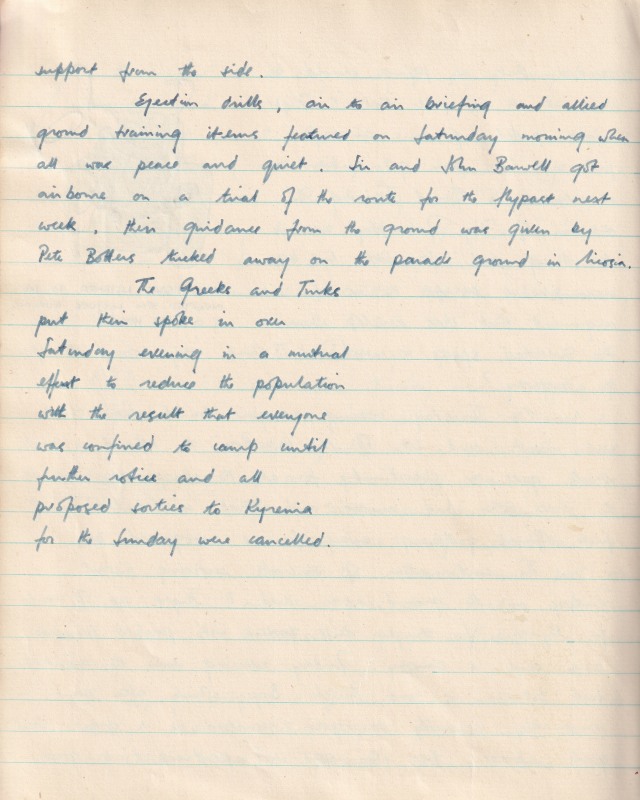 support from the side.
Ejection drills, air to air briefing and allied
ground training items featured on Saturday morning when
all was peace and quiet. Sir and John Barwell got
airborne on a trial of the route for the flypast next
week, their guidance from the ground was given by
Pete Botterill tucked away on the parade ground in Nicosia.
The Greeks and Turks
put their spoke in over
Saturday evening in a mutual
effort to reduce the population
with the result that everyone
was confined to camp until
further notice and all
proposed sorties to Kyrenia
for the Sunday were cancelled.